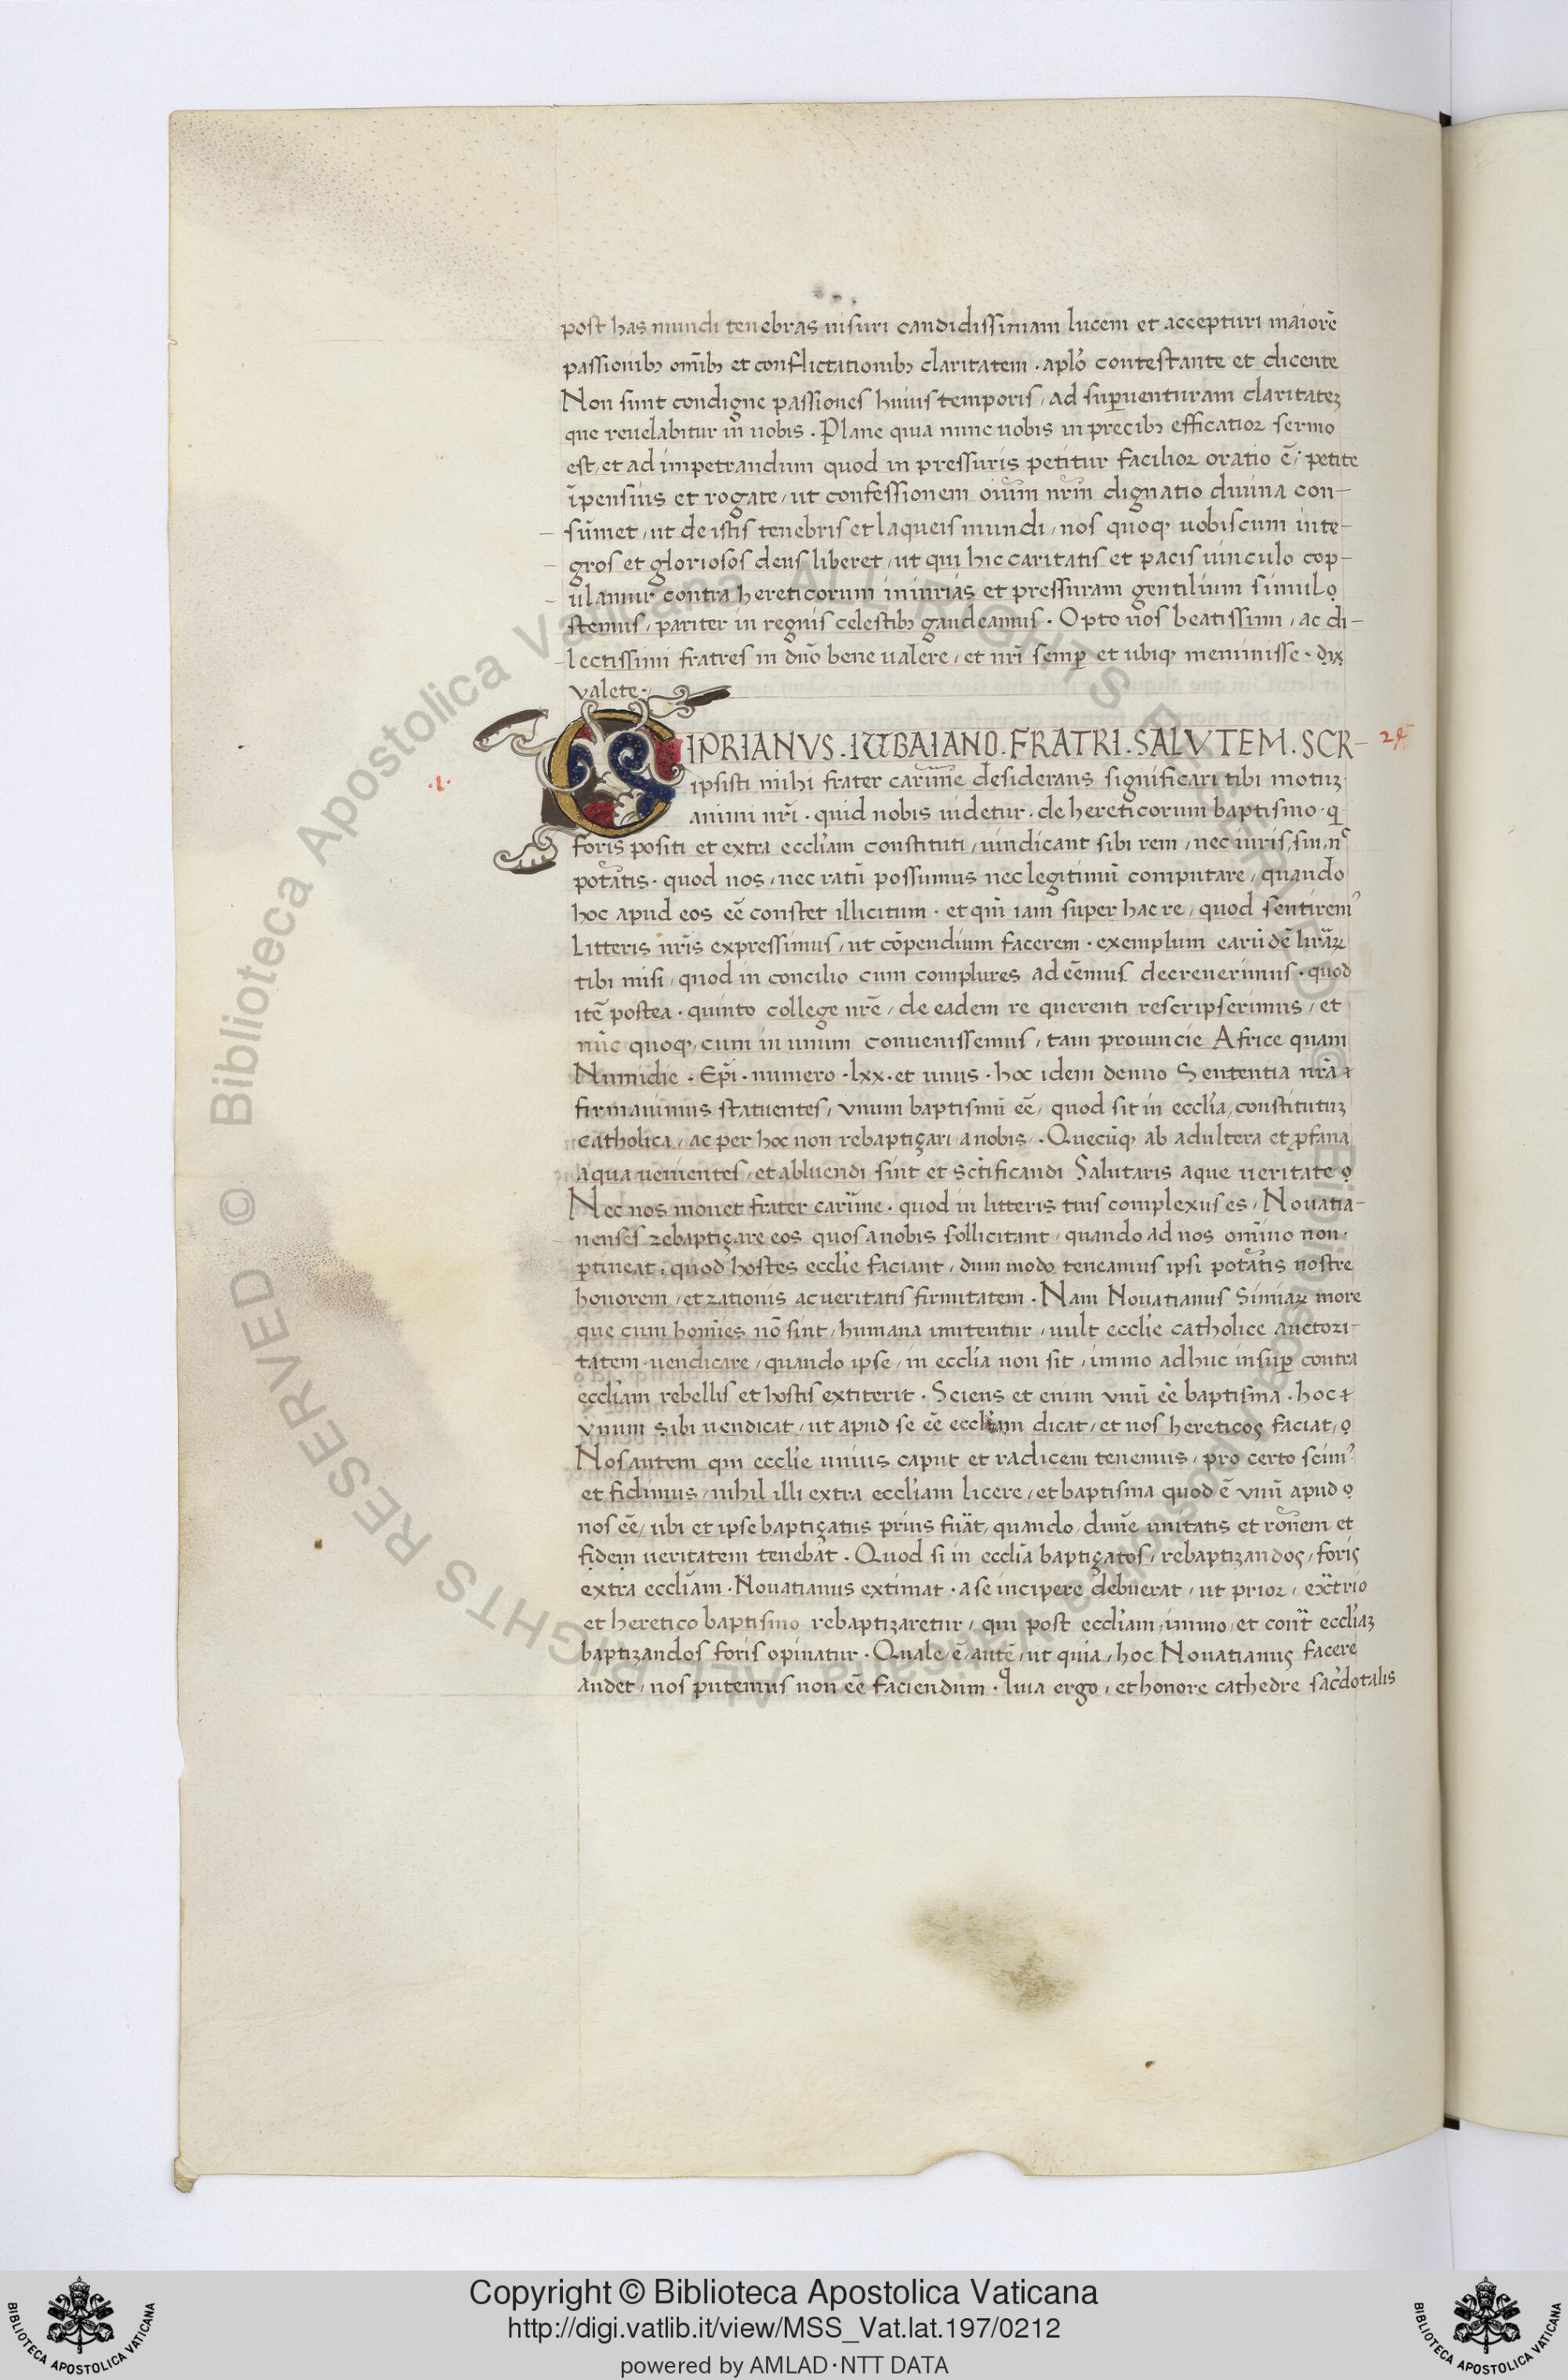 post has mundi tenebras uisuri candidissimam lucem et accepturi maiorẽ
passionibꝫ om̃ibꝫ et conflictationibꝫ claritatem . apl'o contestante et dicente
Non sunt condigne passiones huius temporis / ad sup̱uenturam claritateꝫ
que reuelabitur in nobis . Plane quia nunc uobis in precibꝫ efficatior sermo
est / et ad impetrandum quod in pressuris petitur facilior oratio ẽ / petite
ĩpensius et rogate / ut confessionem oĩum nr̃m dignatio diuina con-
sũmet / ut de istis tenebris et laqueis mundi / nos quoqꝫ uobiscum inte-
gros et gloriosos deus liberet / ut qui hic caritatis et pacis uinculo cop-
ulamur contra hereticorum iniurias et pressuram gentilium simul
stemus / pariter in regnis celestibꝫ gaudeamus . Opto uos beatissimi / ac di-
lectissimi fratres in dño bene ualere / et nr̃i semp̱ et ubiqꝫ meminisse . dix
valete .
CIPRIANVS . IUBAIANO . FRATRI . SALVTEM . SCR-
24
.1.
ipsisti mihi frater carim̃e desiderans significari tibi motuꝫ
animi nr̃i . quid nobis uidetur . de hereticorum baptismo . q̃
foris positi et extra eccl'iam constituti / uindicant sibi rem / nec iuris sui / nc
potãtis . quod nos / nec ratũ possumus nec legitimũ computare / quando
hoc apud eos eẽ constet illicitum . et qm̃ iam super hac re / quod sentirem9
Litteris nr̃is expressimus / ut cõpendium facerem . exemplum earũdẽ lr̃arꝝ
tibi misi / quod in concilio cum complures adeẽmus decreuerimus . quod
itẽ postea . quinto college nr̃e / de eadem re querenti rescripserimus / et
nũc quoqꝫ cum in unum conuenissemus / tam prouincie Africe quam
Numidie . Ep̃i . numero . lxx . et unus . hoc idem denuo Sententia nr̃a
firmauimus statuentes / vnum baptismũ eẽ / quod sit in eccl'ia / constitutuꝫ
catholica / ac per hoc non rebaptiçari anobis . Quecũqꝫ ab adultera et ꝓfana
aqua uenientes / et abluendi sint et sc̃tificandi Salutaris aque ueritate
Nec nos mouet frater carim̃e . quod in litteris tuis complexus es / Nouatia-
nenses rebaptiçare eos quos anobis sollicitant / quando ad nos om̃ino non
ꝑtineat / quod hostes eccl'ie faciant / dum modo teneamus ipsi potãtis nostre
honorem / et rationis ac ueritatis firmitatem . Nam Nouatianus Simiarꝝ more
que cum homĩes nõ sint / humana imitentur / uult eccl'ie catholice auctori-
tatem uendicare / quando ipse / in eccl'ia non sit / immo adhuc insup̱ contra
eccl'iam rebellis et hostis extiterit . Sciens et enim vnũ eẽ baptisma . hoc
vnum sibi uendicat / ut apud se eẽ eccl'iam dicat / et nos hereticos faciat /
Nos autem qui eccl'ie unius caput et radicem tenemus / pro certo scim9
et fidimus / nihil illi extra eccl'iam licere / et baptisma quod ẽ vnũ apud
nos eẽ / ubi et ipse baptiçatus prius fũat / quando / diuĩe unitatis et rõnem et
fidem ueritatem tenebat . Quod si in eccl'ia baptiçatos / rebaptizandos / foris
extra eccl'iam . Nouatianus extimat . a se incipere debuerat / ut prior / extrio
et heretico baptismo rebaptizaretur / qui post eccl'iam / immo / et cont̃ eccl'iaꝫ
baptizandos foris opinatur . Quale / ẽ / autẽ / ut quia / hoc Nouatianus facere
audet / nos putemus non eẽ faciendum . Quia ergo / et honore cathedre sac̃dotalis
Biblioteca Apostolica Vaticana ALL RIGHTS RESERVED ©
Copyright © Biblioteca Apostolica Vaticana
http://digi.vatlib.it/view/MSS_Vat.lat.197/0212
powered by AMLAD·NTT DATA
BIBLIOTECA APOSTOLICA VATICANA
BIBLIOTECA APOSTOLICA VATICANA